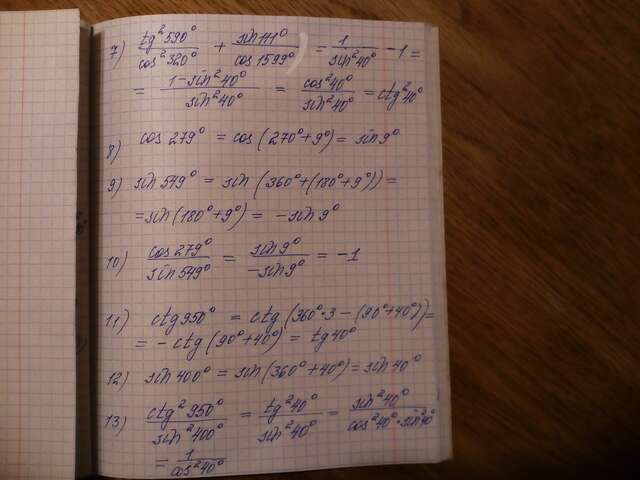 7) tg²590°/cos²320° + sin111°/cos1599° = 1/sin²40° - 1 =
= 1-sin²40°/sin²40° = cos²40°/sin²40° = ctg²40°
8) cos279° = cos(270°+9°) = sin9°
9) sin549° = sin(360°+(180°+9°)) =
= sin(180°+9°) = -sin9°
10) cos279°/sin549° = sin9°/-sin9° = -1
11) ctg950° = ctg(360°·3-(90°+40°)) =
= -ctg(90°+40°) = tg40°
12) sin400° = sin(360°+40°) = sin40°
13) ctg²950°/sin²400° = tg²40°/sin²40° = sin²40°/cos²40°·sin²40°
= 1/cos²40°